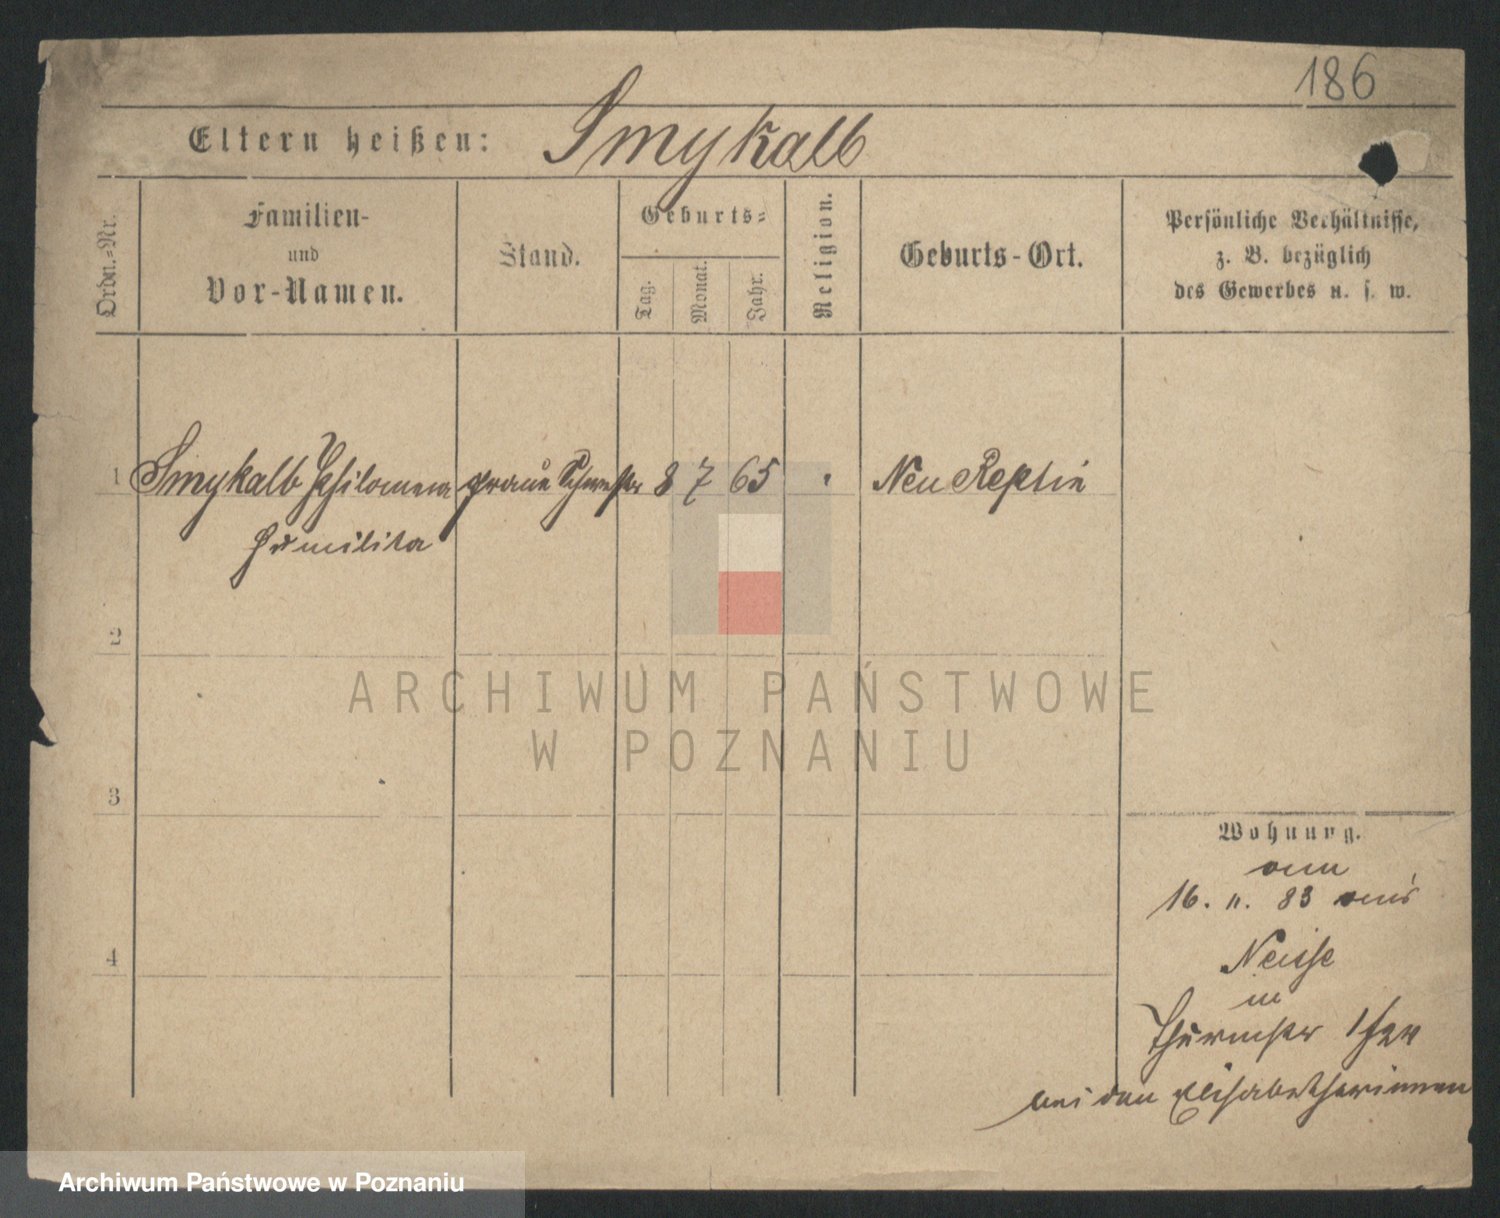 186
Eltern heißen: Smykalb
Ordn.-Nr.
Familien-
und
Vor-Namen.
Stand.
Geburts-
Tag.
Monat.
Jahr.
Religion.
Geburts-Ort.
Persönliche Verhältnisse,
z. B. bezüglich
des Gewerbes u. s. w.
1 Smykalb Philomena graue Schwester 8 7 65 Neu Reptin
Humilita
2
3
4
Wohnung.
16. 11. 83 aus
Neisse
in
Thurmstr
bei den Elisabetherinnen
ARCHIWUM PAŃSTWOWE
W POZNANIU
Archiwum Państwowe w Poznaniu